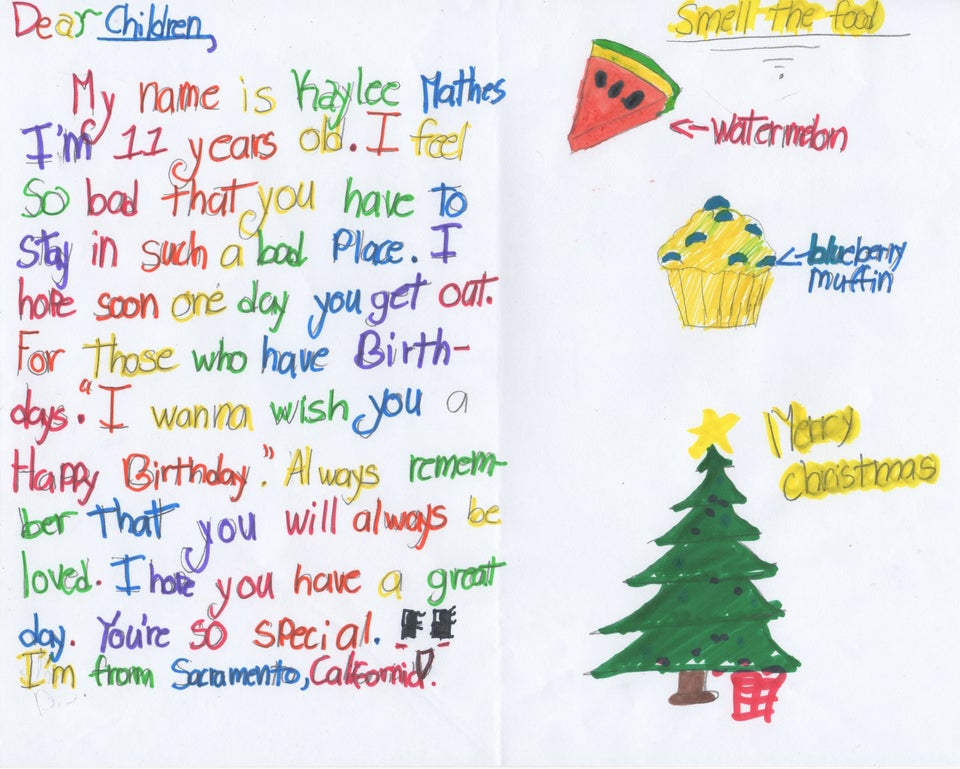 Dear Children,
My name is Kaylee Mathes
I'm 11 years old. I feel
so bad that you have to
stay in such a bad Place. I
hope soon one day you get out.
For those who have Birth-
days. "I wanna wish you a
Happy Birthday". Always remem-
ber that you will always be
loved. I hope you have a great
day. You're so special.
I'm from Sacramento, California.
Smell the food
<- watermelon
<- blueberry
muffin
Merry
christmas